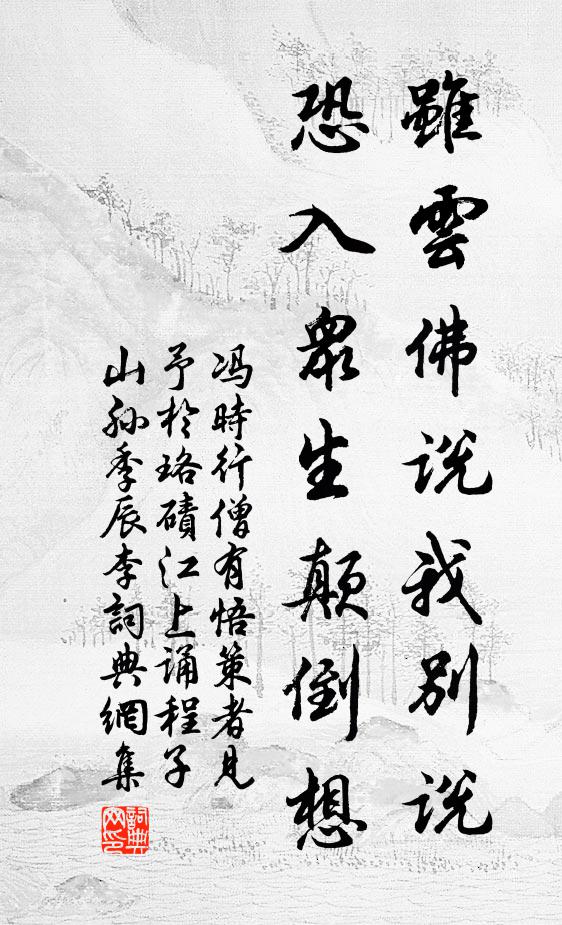 雖雲佛说我别说
恐入眾生颠倒想
冯時行僧有悟策者見
予於珞磧江上诵程子
山孙季辰李詞典網集
詞典
网印